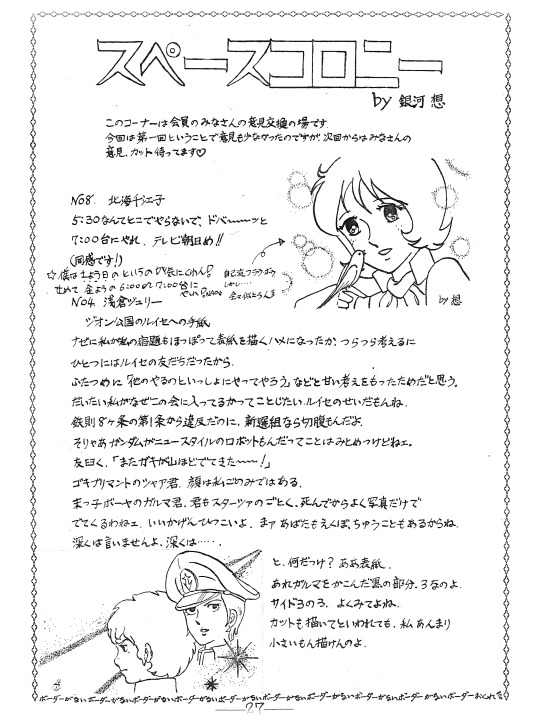 スペースコロニー
by 銀河 想
このコーナーは会員のみなさんの意見交換の場です
今回は第一回ということで意見も少なかったのですが、次回からはみなさんの
意見、カット待ってます♡
No8. 北海千江子
5:30なんてとこでやらないで、ドバーーーッと
7:00台にやれ、テレビ朝日め!!
(同感です!)
☆僕は土よう日のというのが気にくわん!
せめて 金ようの6:00か7:00台に
やれ!
自己流フラウ・ボウ
全々似とらんネ
by 想
No4. 浅倉ジュリー
ジオン公国のルイセへの手紙
ナゼに私が私の宿題もほっぽって表紙を描くハメになったか、つらつら考えるに
ひとつにはルイセの友だちだったから.
ふたつめに「他のやるのといっしょにやってやろう」などと甘い考えをもったためだと思う.
だいたい私がなぜこの会に入ってるかってことじたい.ルイセのせいだもんね.
鉄則8ヶ条の第1条から違反だのに、新選組なら切腹もんだよ.
そりゃあガンダムがニュースタイルのロボットもんだってことはみとめっけどねェ.
友曰く、「またガキが山ほどでてきた〜〜〜!」
ゴキブリマントのシャア君. 顔は私ごのみではある.
末っ子ボーヤのガルマ君. 君もスターシアのごとく、死んでからよく写真だけで
でてくるわねェ. いいかげんひつこいよ. まァ あばたもえくぼ、ちゅうこともあるからね.
深くは言いませんよ. 深くは……
と、何だっけ? ああ表紙.
あれガルマをかこんだ黒の部分. 3なのよ.
サイド3の3. よくみてよね.
カットも描いてといわれても. 私 あんまり
小さいもん描けんのよ.
ボーダーがないボーダーがないボーダーがないボーダーがないボーダーがないボーダーがないボーダーがないボーダーがないボーダーおくれ
27